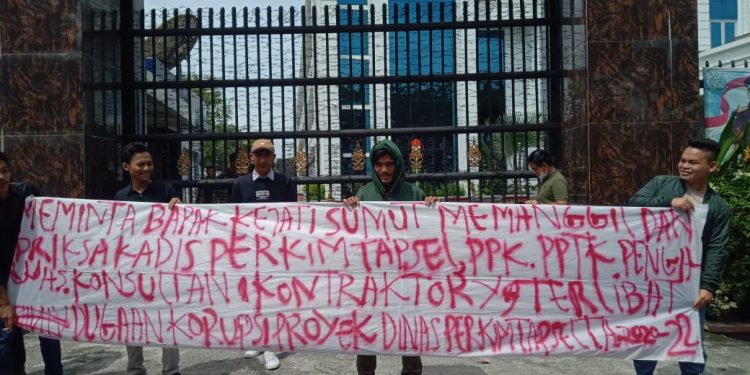 MEMINTA BAPAK KEJATI SUMUT MEMANGGIL DAN
PRIKSA KADIS PERKIM TAPSEL, PPK. PPTK. PENGA
WAS. KONSULTAN, KONTRAKTOR Yg TERLIBAT
DUGAAN KORUPSI PROYEK DINAS PERKIM TAPSEL T.A 2020-22